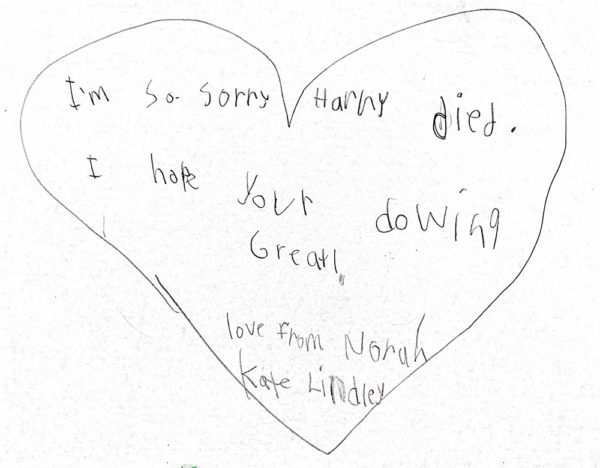 I'm so sorry Harry died.
I hope your dowing
Great!
love from Norah
Kate Lindley